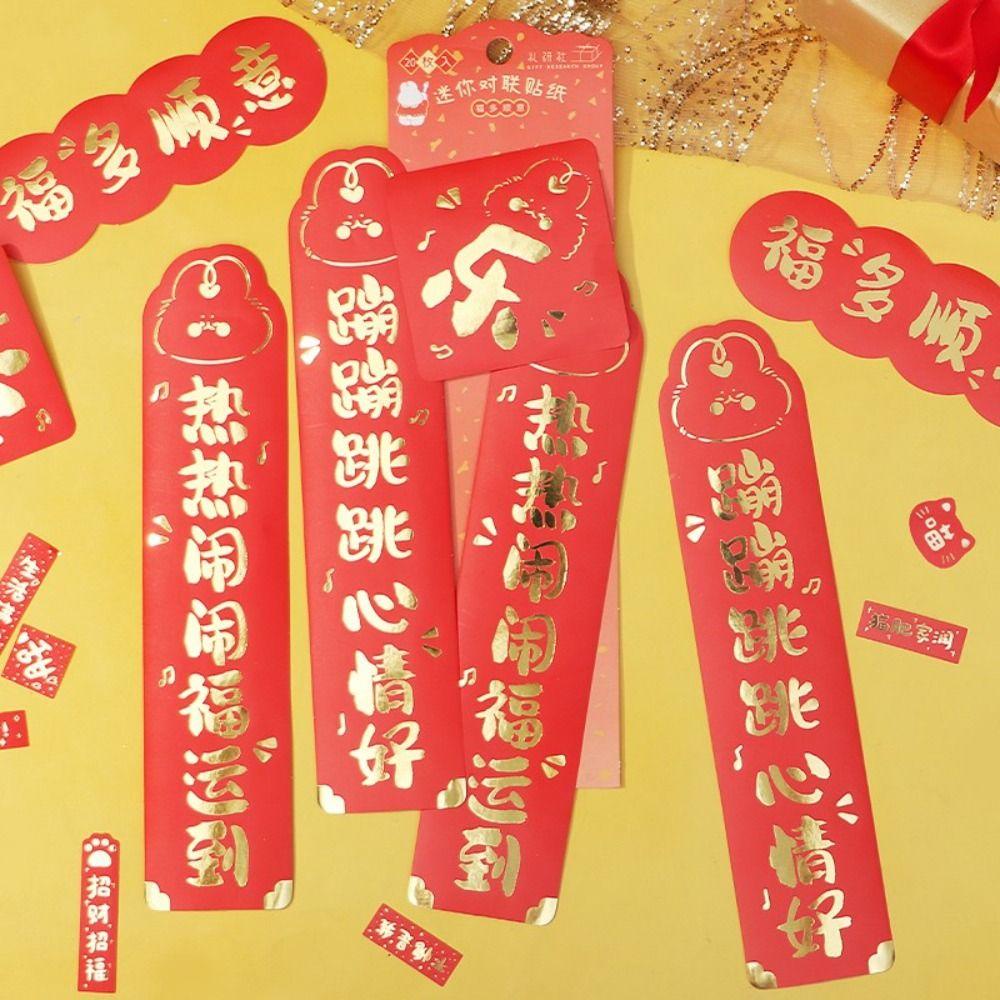 福多顺意
20枚入
礼研社
GIFT RESEARCH GROUP
迷你对联贴纸
福多顺意
福多顺
热热闹闹福运到
蹦蹦跳跳心情好
乐
热热闹闹福运到
蹦蹦跳跳心情好
喵
猫肥家润
生活
招财招福